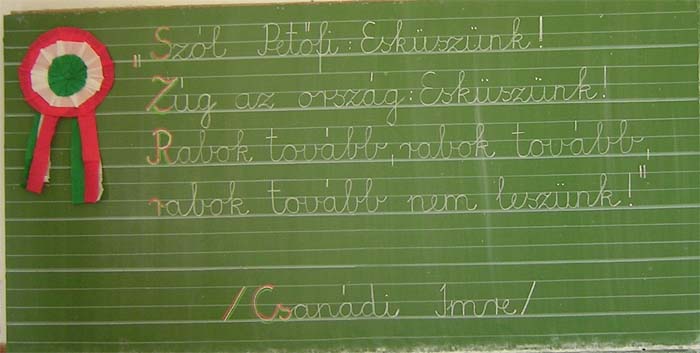 „Szól Petőfi: Esküszünk!
Zúg az ország: Esküszünk!
Rabok tovább, rabok tovább,
rabok tovább nem leszünk!"
/Csanádi Imre/